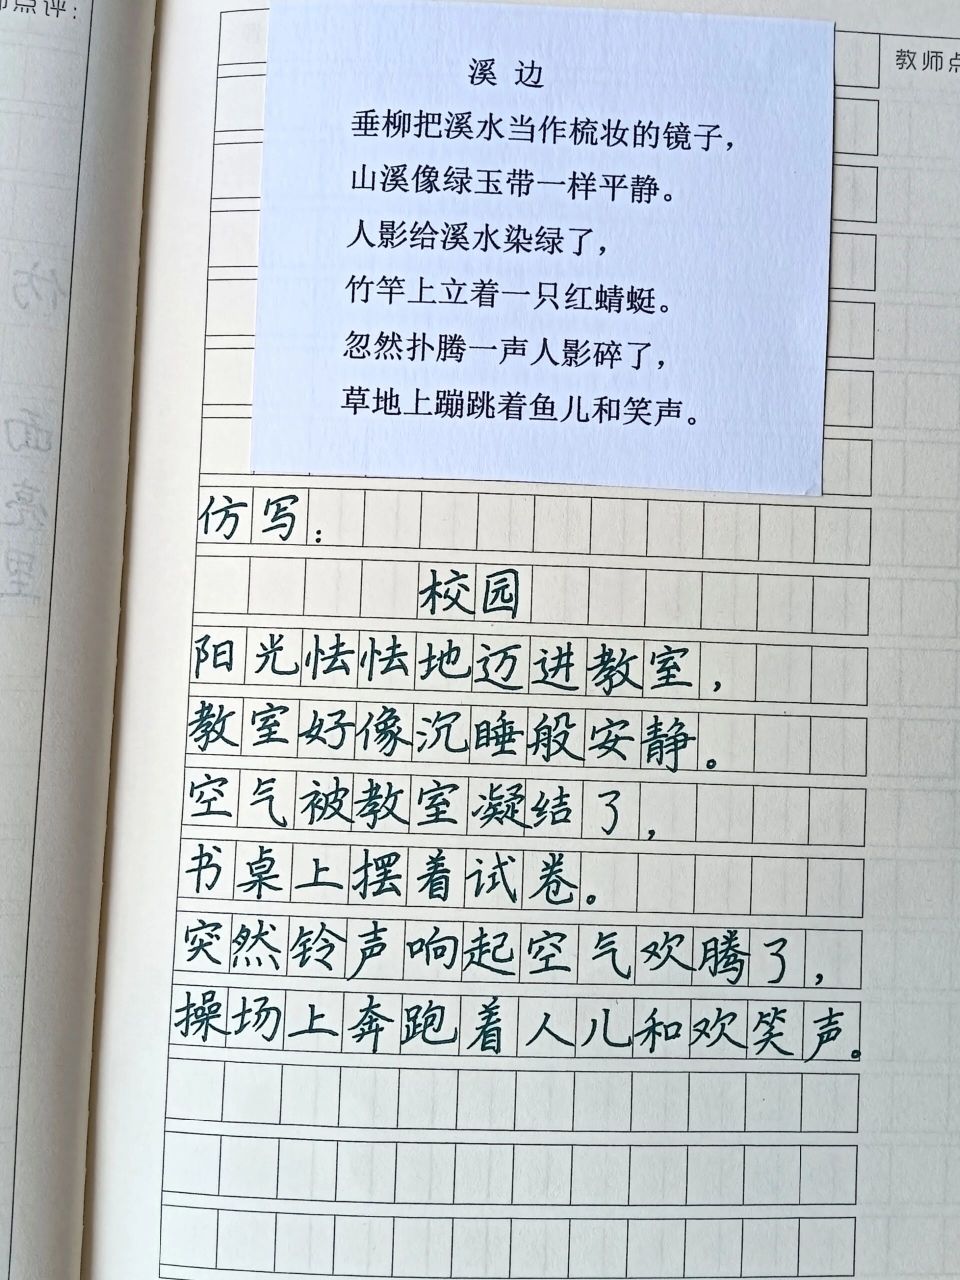 师点评：
教师点
溪 边
垂柳把溪水当作梳妆的镜子，
山溪像绿玉带一样平静。
人影给溪水染绿了，
竹竿上立着一只红蜻蜓。
忽然扑腾一声人影碎了，
草地上蹦跳着鱼儿和笑声。
仿写：
校园
阳光怯怯地迈进教室，
教室好像沉睡般安静。
空气被教室凝结了，
书桌上摆着试卷。
突然铃声响起空气欢腾了，
操场上奔跑着人儿和欢笑声。